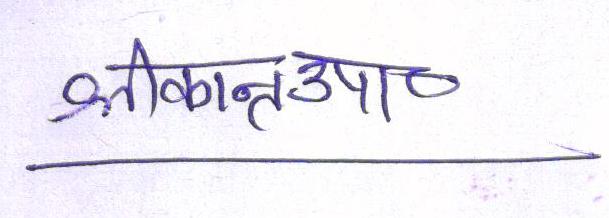 श्रीकान्त उपा०